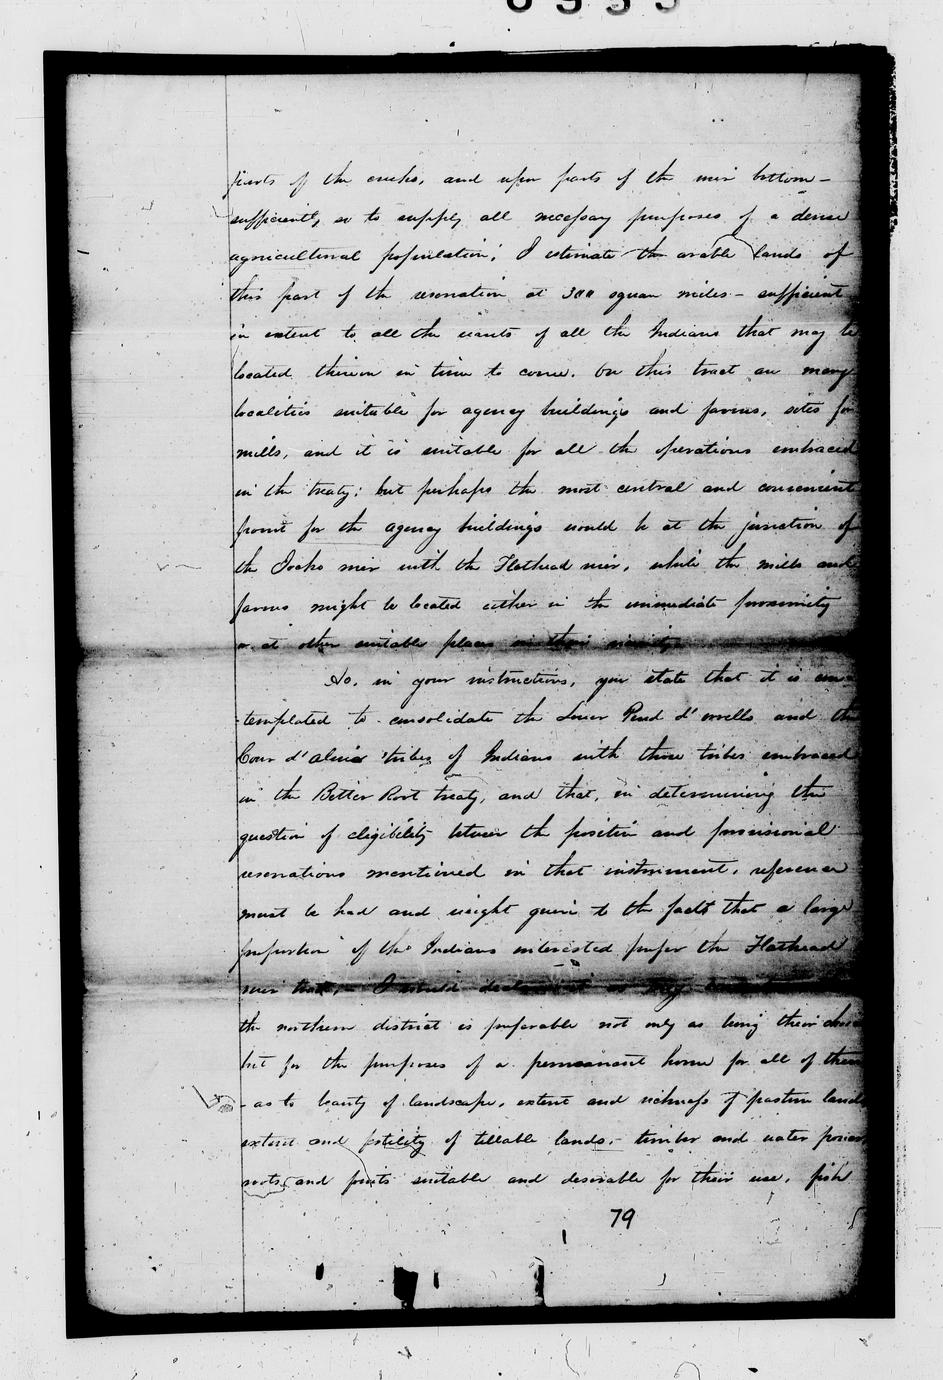 parts of the creeks, and upon parts of the river bottom –
sufficiently so to supply all necessary purposes of a dense
agricultural population; I estimate the arable lands of
this part of the reservation at 300 square miles – sufficient
in extent to all the wants of all the Indians that may be
located thereon in time to come. On this tract are many
localities suitable for agency buildings and farms, sites for
mills, and it is suitable for all the operations embraced
in the treaty: but perhaps the most central and convenient
point for the agency buildings would be at the junction of
the Jocko river with the Flathead river, while the mills and
farms might be located either in the immediate proximity
or at other suitable places in their vicinity.
As, in your instructions, you state that it is con-
-templated to consolidate the Lower Pend d'oreills and the
Coeur d'alenes tribes of Indians with those tribes embraced
in the Bitter Root treaty, and that, in determining the
question of eligibility between the positive and provisional
reservations mentioned in that instrument, reference
must be had and weight given to the fact that a large
proportion of the Indians interested prefer the Flathead
river tract, – I would
the northern district is preferable not only as being their choice
but for the purposes of a permanent home for all of them
– as to beauty of landscape, extent and richness of pasture lands
extent and fertility of tillable lands, – timber and water power
roots and fruits suitable and desirable for their use, fish
79